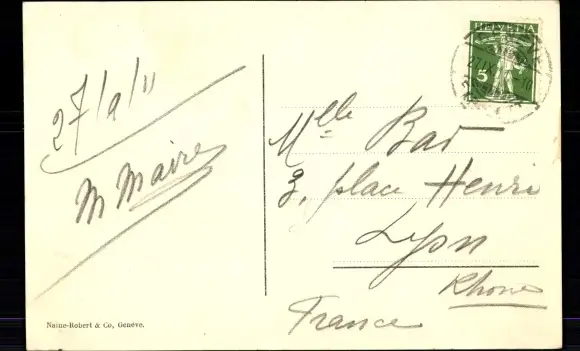 27/9/11
M Maire
HELVETIA
5
27 IX
Mlle Bar
3, place Henri
Lyon
Rhône
France
Naine-Robert & Co, Genève.